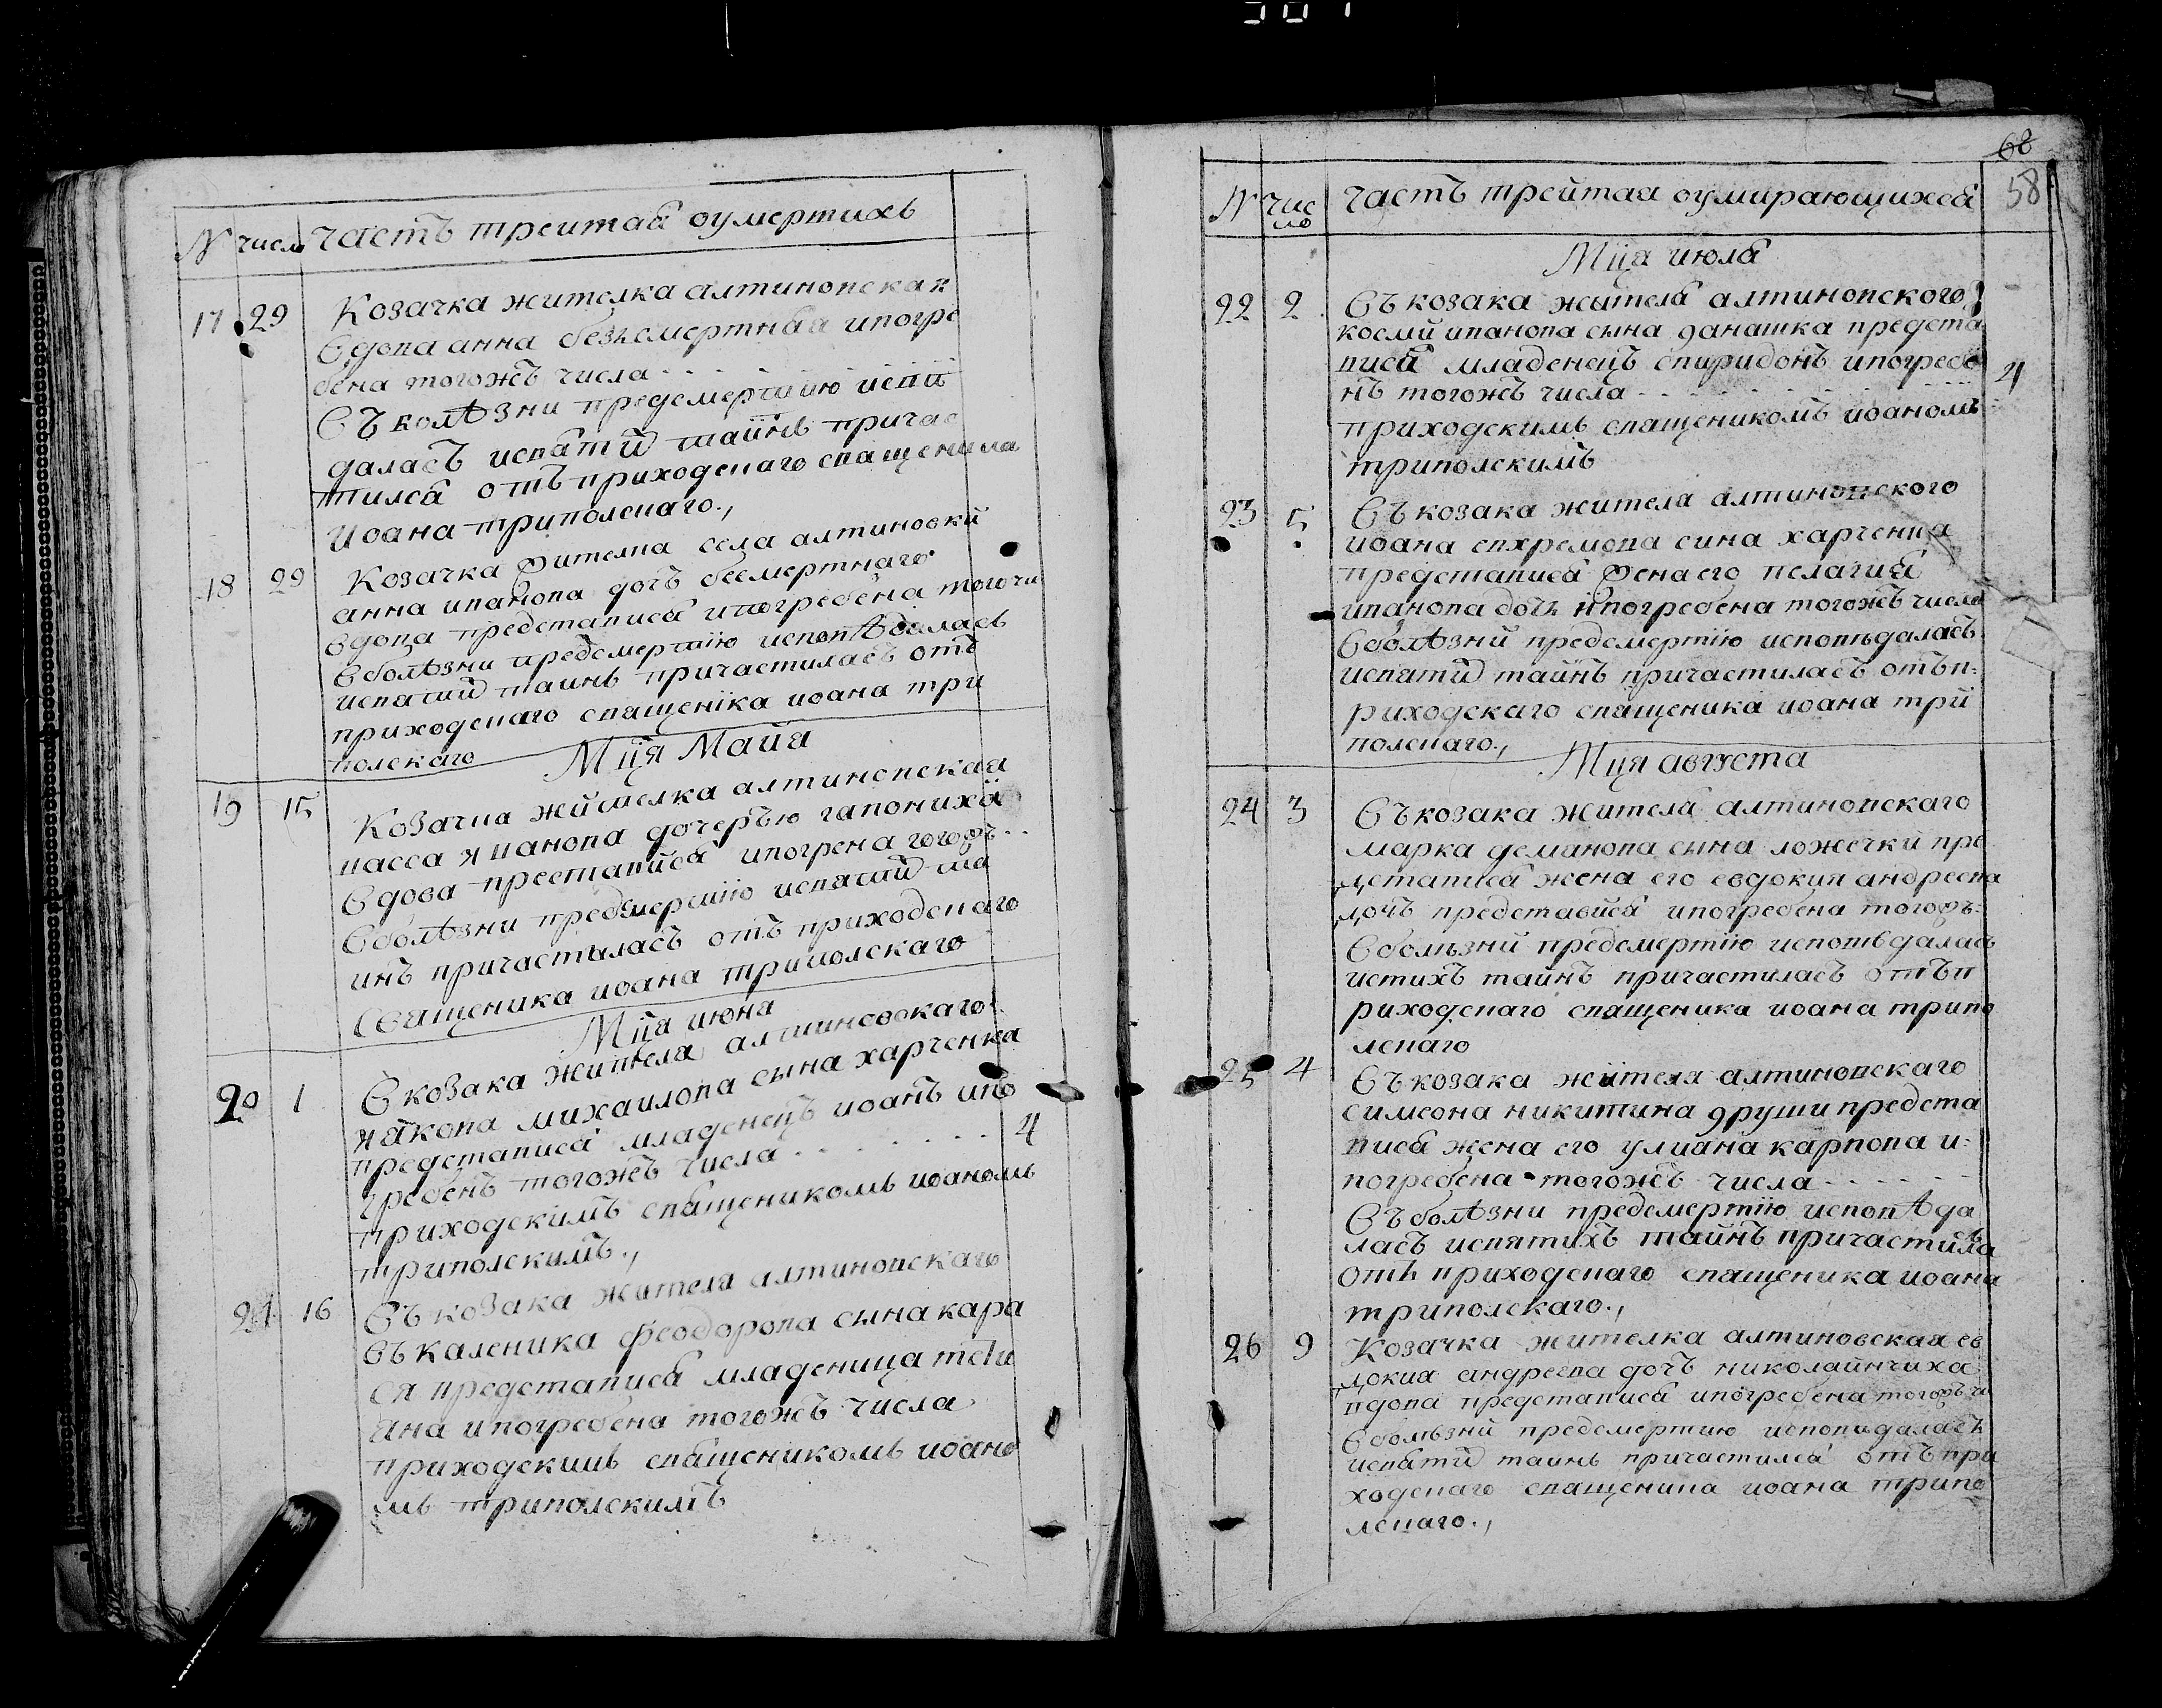 N число часть трейтая оумертихъ
17 29 Козачка жителка алтиновская
вдова анна безъсмертная и погре
бена тогожъ числа
Съ болѣзни предсмертию испо
далась исвятй таинъ причас
тился отъ приходскаго священика
Иоана триполскаго.,
18 29 Козачка жителка села алтиновкй
анна иванова дочъ бесмертнаго
вдова представися и погребена того чи
С болѣзни предсмертїю исповѣдалась
исвятий таинъ причастилась отъ
приходскаго священїка иоана три
полскаго
Мца Майя
19 15 Козачка жйтелка алтиновская
васса иванова дочерью гапонихӑ
вдова преставйся и погрена тогожъ
С болѣзни предсмертїю исвятий та
инъ причастыласъ отъ приходскаго
священика иоана триполскаго
Мца июня
20 1 С козака жителя алтиновскаго
якова михаилова сына харченка
представися младенецъ иоанъ и по
гребенъ тогожъ числа 4
приходскимъ священикомъ иоаномъ
триполскимъ.,
21 16 Съ козака жителя алтиновскаго
съ каленика феодорова сына кара
ся представися младеница
яна и погребена тогожъ числа
приходскимъ священикомъ иоано
мъ триполскимъ
68
58
N число часть трейтая оумирающихся
Мца июля
22 2 Съ козака жителя алтиновского
косми иванова сына данашка предста
вися младенецъ спиридонъ и погребе
нъ тогожъ числа 4
приходскимъ священикомъ иоаномъ
триполскимъ
23 5 Съ козака жителя алтиновского
иоана ехремова сина харченка
представися жена его пелагия
иванова дочъ и погребена тогожъ числа
С болѣзнй предсмертїю исповѣдалась
исвятй тайнъ причастилась отъ п
риходскаго священика иоана трй
полскаго.,
Мця августа
24 3 Съ козака жителя алтиновскаго
марка деманова сына ложечки пре
дставися жена его евдокия андреева
дочъ представися и погребена тогожъ
С болѣзнй предсмертїю исповѣдалась
истихъ тайнъ причастилась отъ п
риходскаго священика иоана трипо
лскаго
25 4 Съ козака жителя алтиновскаго
симеона никитина друши предста
вися жена его улиана карпова и
погребена тогожъ числа
Съ болѣзни предсмертїю исповѣда
лась исвятихъ тайнъ причастила
отъ приходскаго священика иоана
триполскаго.,
26 9 Козачка жителка алтиновская ев
докия андреева дочъ николайнчиха
вдова представися и погребена тогожъ чи
С болѣзнй предсмертию исповидалась
исвятй таинъ причастился отъ при
ходскаго священика иоана трипо
лскаго.,